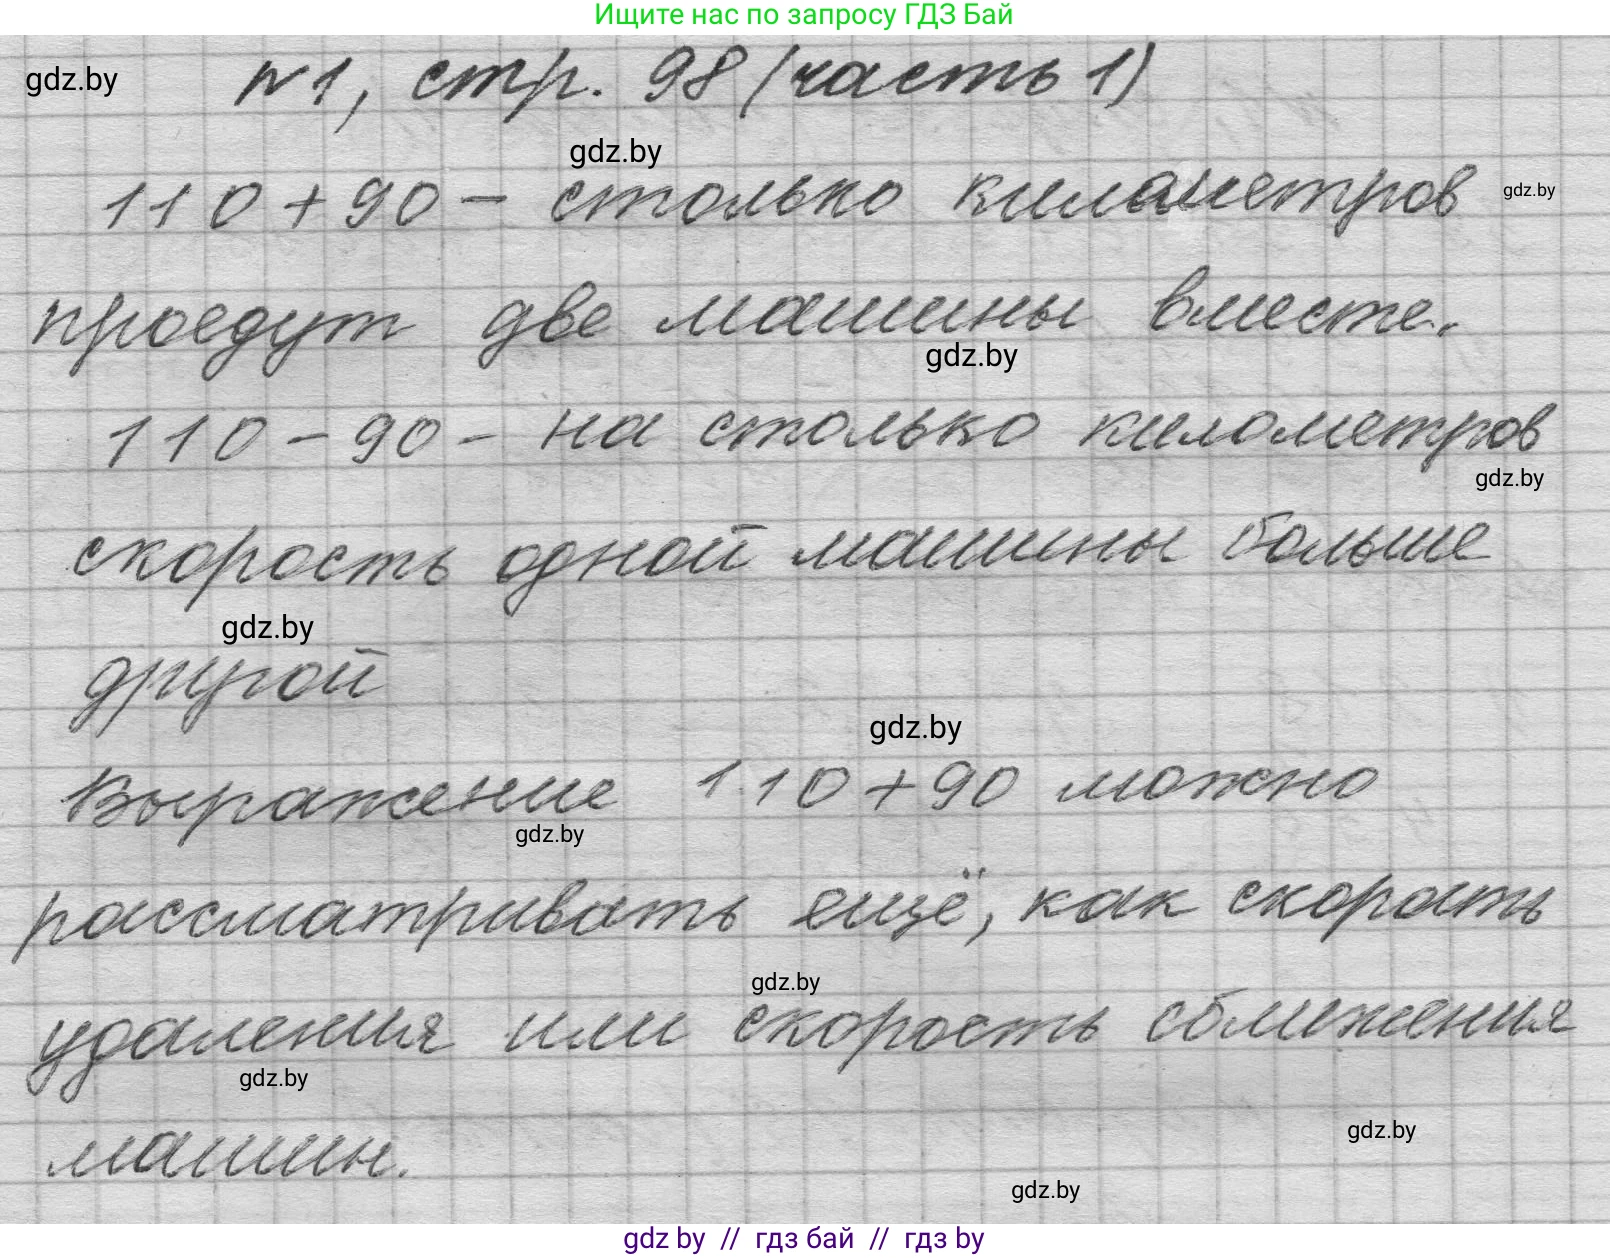 Ищите нас по запросу ГДЗ Бай
gdz.by
№1, стр. 98 (часть 1)
gdz.by
110 + 90 - столько километров
gdz.by
проедут две машины вместе.
gdz.by
110 - 90 - на столько километров
gdz.by
скорость одной машины больше
gdz.by
другой
gdz.by
Выражение 110 + 90 можно
gdz.by
рассматривать ещё, как скорость
gdz.by
удаления или скорость сближения
gdz.by
машин.
gdz.by
gdz.by
gdz by // гдз бай // гдз by